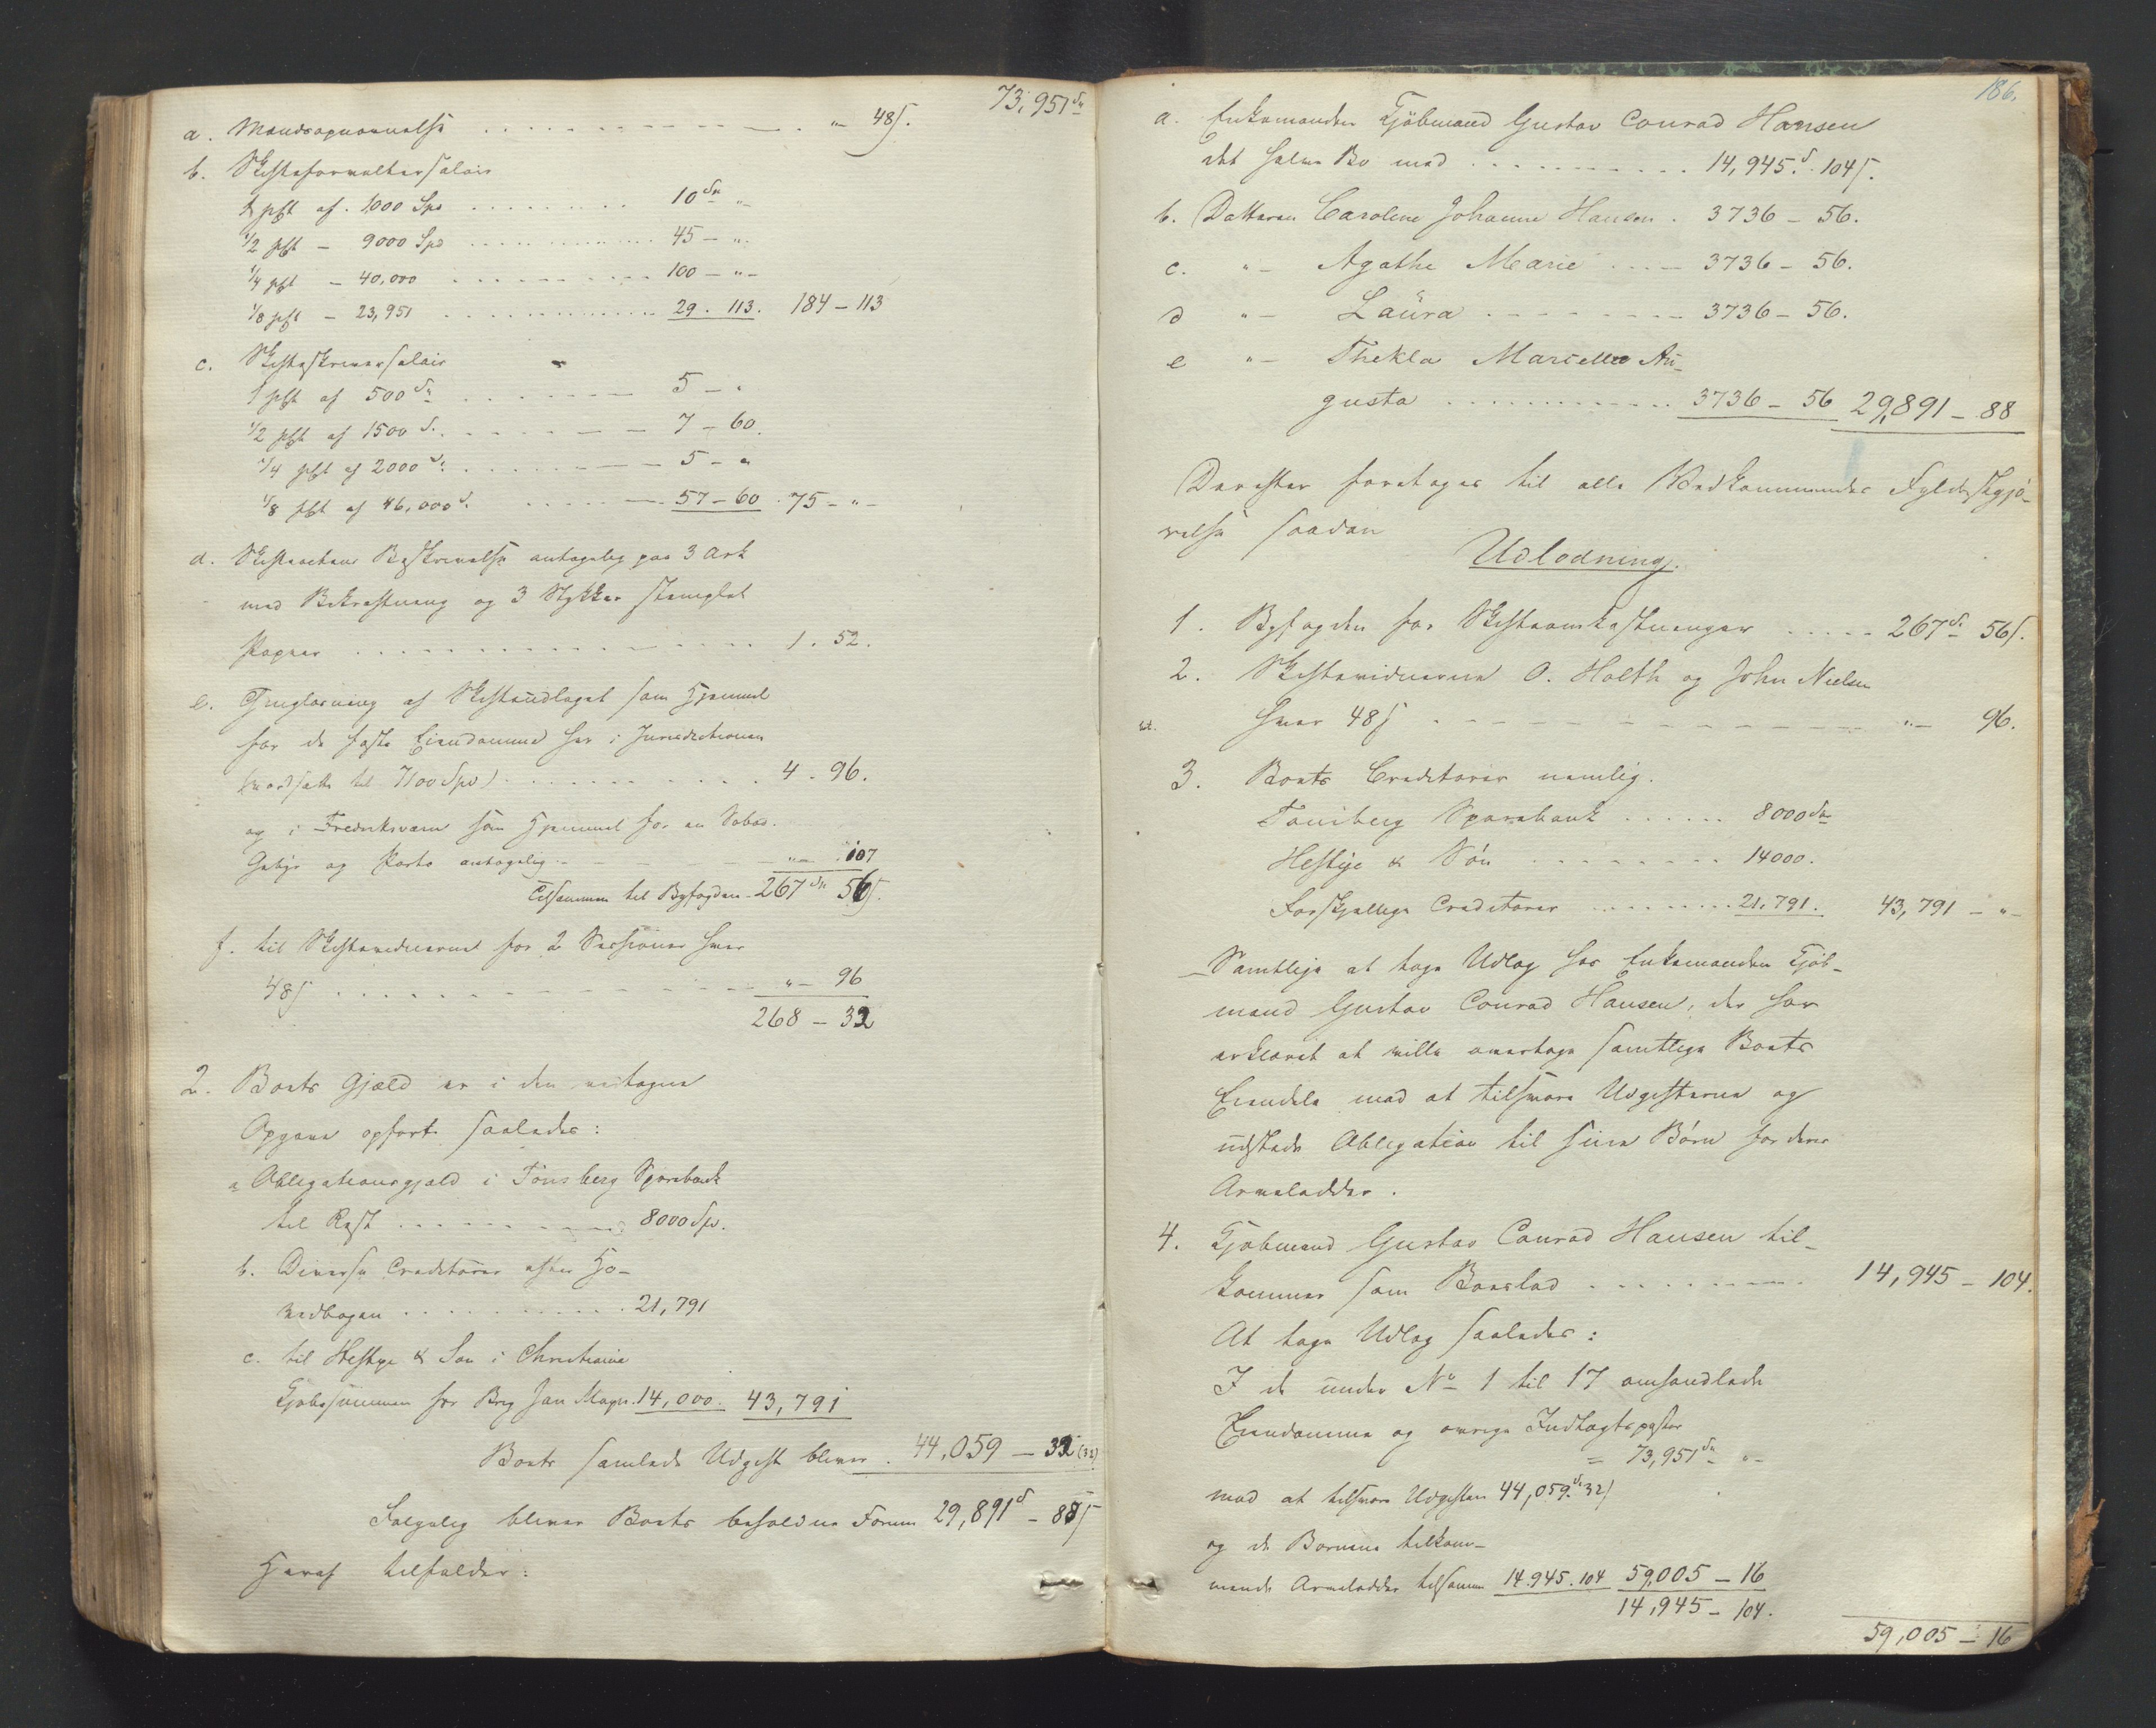 73,951 Sp
a. Mandsopnævnelse . . . . . . " – 48 s.
b. Skifteforvaltersalair
1 pCt af 1000 Spd . . . . . . 10 Sp "
1/2 pCt – 9000 Spd . . . . . . 45 – "
1/4 pCt – 40,000 . . . . . . 100 – " –
1/8 pCt – 23,951 . . . . . . 29 . 113. 184 – 113
c. Skifteskriversalair
1 pCt af 500 Sp . . . . . . 5 – "
1/2 pCt af 1500 S. . . . . . . 7 – 60.
1/4 pCt af 2000 S. . . . . . . 5 – "
1/8 pCt af 46,000 S. . . . . . . 57 – 60 . 75 – " –
d. Skifteactens Beskrivelse antagelig paa 3 Ark
med Bekræftning og 3 Stykker stemplet
Papiir . . . . . . 1 . 52.
e. Thinglæsning af Skifteudlæget som Hjemmel
for de faste Eiendomme her i Jurisdictionen
(værdsatte til 7100 Spd) . . . . . . 4 . 96.
og i Fredriksværn som Hjemmel for en Søbod.
Gebyr og Porto antagelig – – – " – 107
Tilsammen til Byfogden 267 Sp 56 s.
f. til Skiftevidnerne for 2 Sessioner hver
48 s . . . . . . " – 96
268 – 32
2. Boets Gjæld er i den modtagne
Opgave opført saaledes:
a Obligationsgjæld i Tönsberg Sparebank
til Rest . . . . . . 8000 Spd.
b. Diverse Creditorer efter Ho-
vedbogen . . . . . . 21,791
c. til Heftye & Søn i Christiania
Kjøbesummen for Brig Jan Mayn. 14,000. 43,791
Boets samlede Udgift bliver . 44,059 – 32 (32)
Følgelig bliver Boets beholdne Formue 29,891 S – 88 s
Heraf tilfalder:
186.
a. Enkemanden Kjöbmand Gustav Conrad Hansen
det halve Bo med . . . . . . 14,945 S. 104 s.
b. Datteren Caroline Johanne Hansen . 3736 – 56.
c. " – Agathe Marie . . . – 3736 – 56.
d " – Laura . . . . . . 3736 – 56.
e " – Thekla Marcelle Au-
gusta . . . . . . 3736 – 56 29,891 – 88
Derefter foretages til alle Vedkommendes Fyldestgjø-
relse saadan
Udlodning.
1. Byfogden for Skifteomkostninger . . . . . 267 S. 56 s.
2. Skiftevidnerne O. Holth og John Nielsen
hver 48 s . . . . . . " – 96.
3. Boets Creditorer nemlig.
Tønsberg Sparebank . . . . . . 8000 Sp
Heftye & Sön . . . . . . 14000.
Forskjellige Creditorer . . . . . . 21,791. 43,791 – " –
Samtlige at tage Udlæg hos Enkemanden Kjöb-
mand Gustav Conrad Hansen, der har
erklæret at ville overtage samtlige Boets
Eiendele mod at tilsvare Udgifterne og
udstede Obligation til sine Börn for deres
Arvelodder.
4. Kjøbmand Gustav Conrad Hansen til-
kommer som Boeslod . . . . . . 14,945 – 104.
At tage Udlæg saaledes:
I de under No 1 til 17 omhandlede
Eiendomme og øvrige Indtægtsposter
= 73,951 Sp " –
mod at tilsvare Udgiften 44,059 S. 32 s
og de Børnene tilkom-
mende Arvelodder tilsammen 14.945.104 59,005 – 16
14,945 – 104.
59,005 – 16